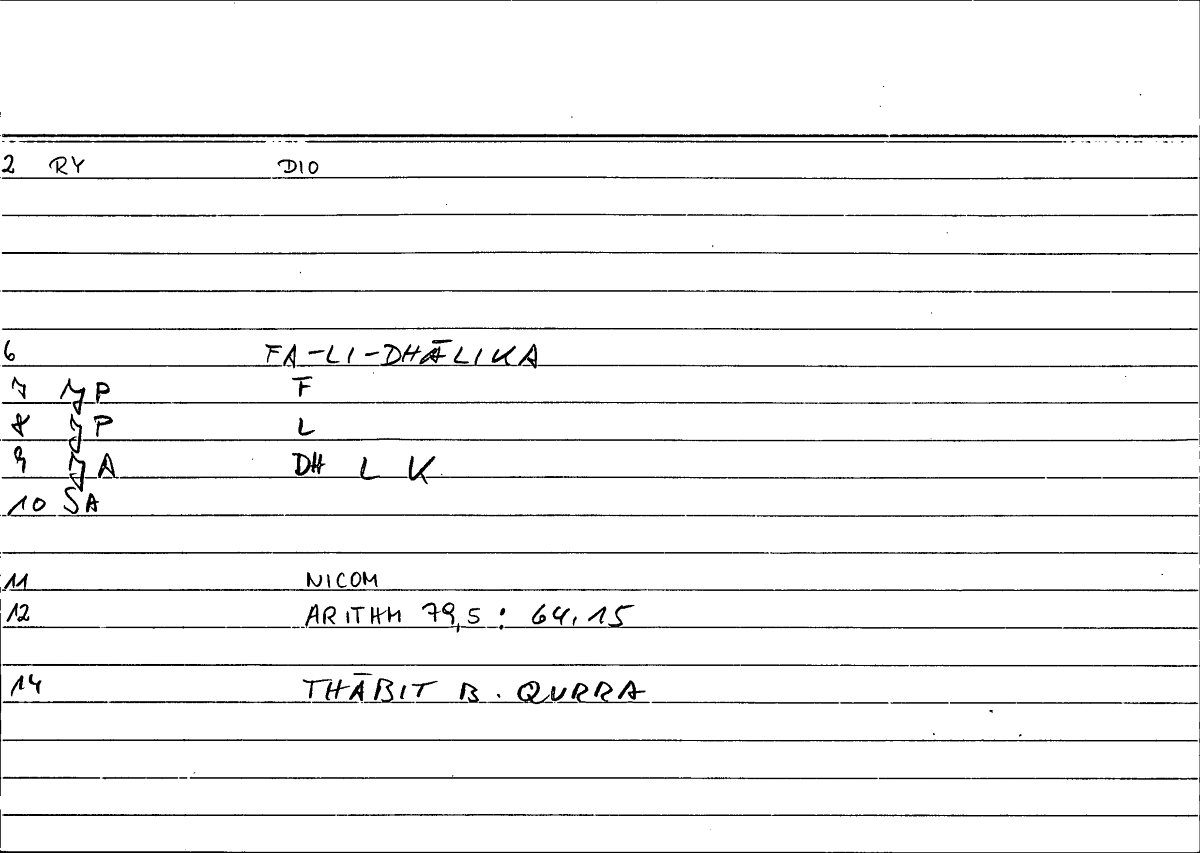 2 RY DIO
6 FA-LI-DHĀLIKA
7 P F
8 P L
9 A DH L K
10 SA
11 NICOM
12 ARITHM 79,5 : 64,15
14 THĀBIT B. QURRA